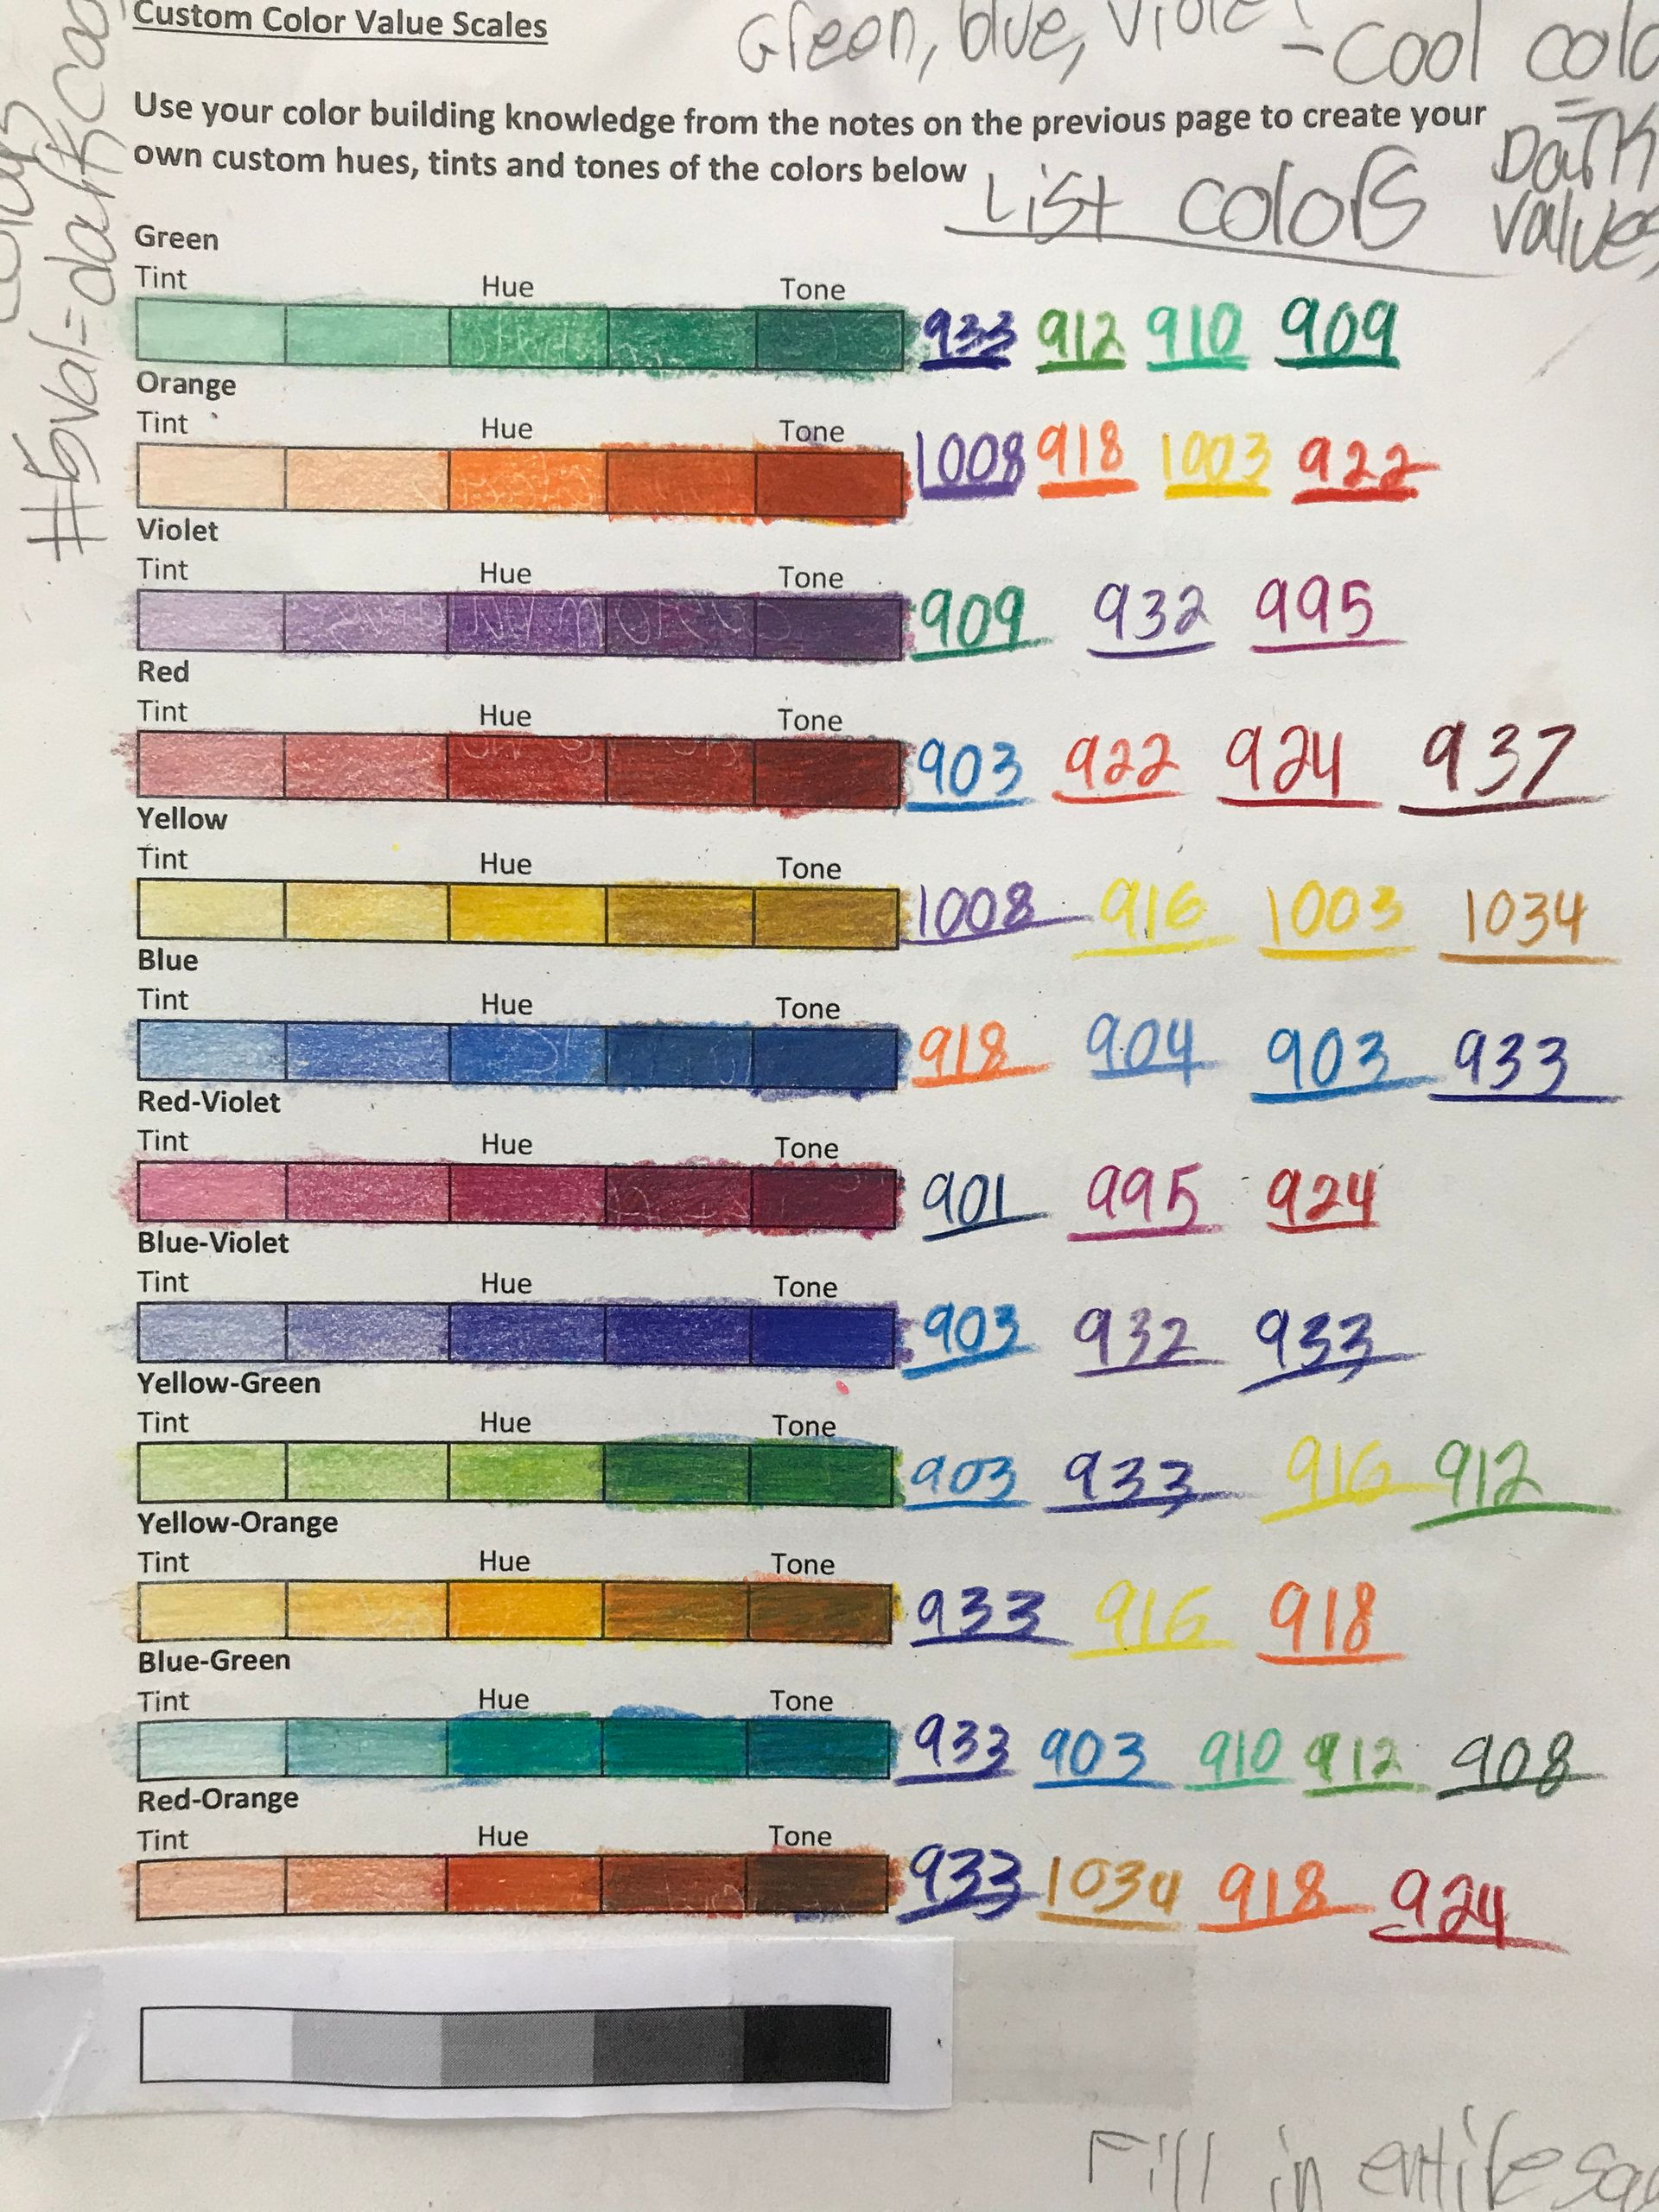 Custom Color Value Scales
Green, blue, - Cool
Use your color building knowledge from the notes on the previous page to create your
own custom hues, tints and tones of the colors below
List colors
= Dark
values
#5val=dark
Green
Tint Hue Tone
933 912 910 909
Orange
Tint Hue Tone
1008 918 1003 922
Violet
Tint Hue Tone
909 932 995
Red
Tint Hue Tone
903 922 924 937
Yellow
Tint Hue Tone
1008 916 1003 1034
Blue
Tint Hue Tone
918 904 903 933
Red-Violet
Tint Hue Tone
901 995 924
Blue-Violet
Tint Hue Tone
903 932 933
Yellow-Green
Tint Hue Tone
903 933 916 912
Yellow-Orange
Tint Hue Tone
933 916 918
Blue-Green
Tint Hue Tone
933 903 910 912 908
Red-Orange
Tint Hue Tone
933 1034 918 924
Fill in entire